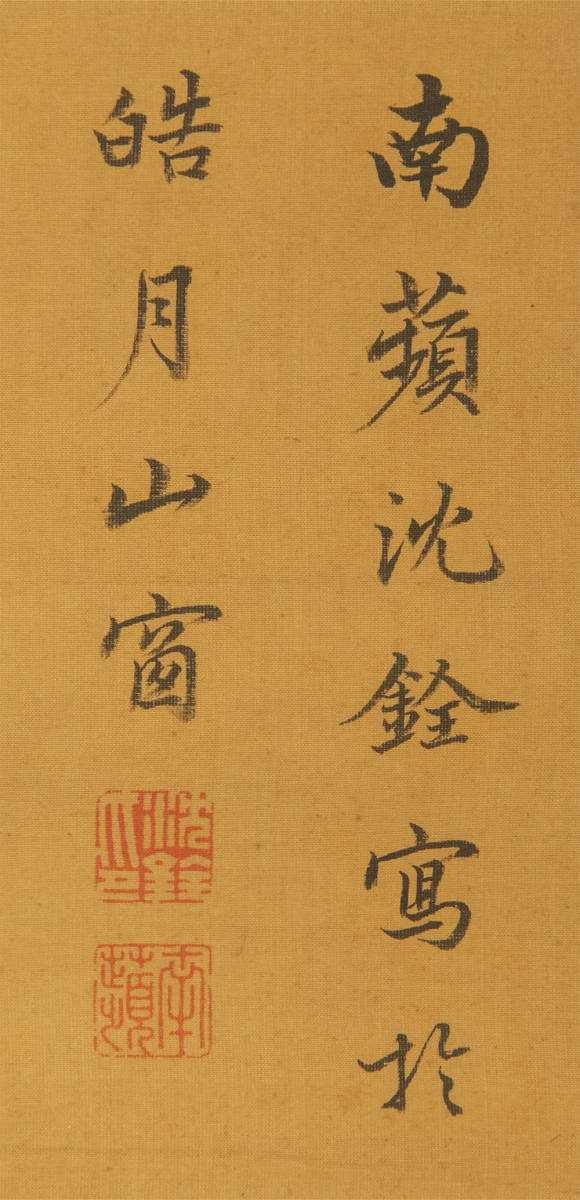 南蘋沈銓寫於
皓月山窗
沈銓之印
南蘋